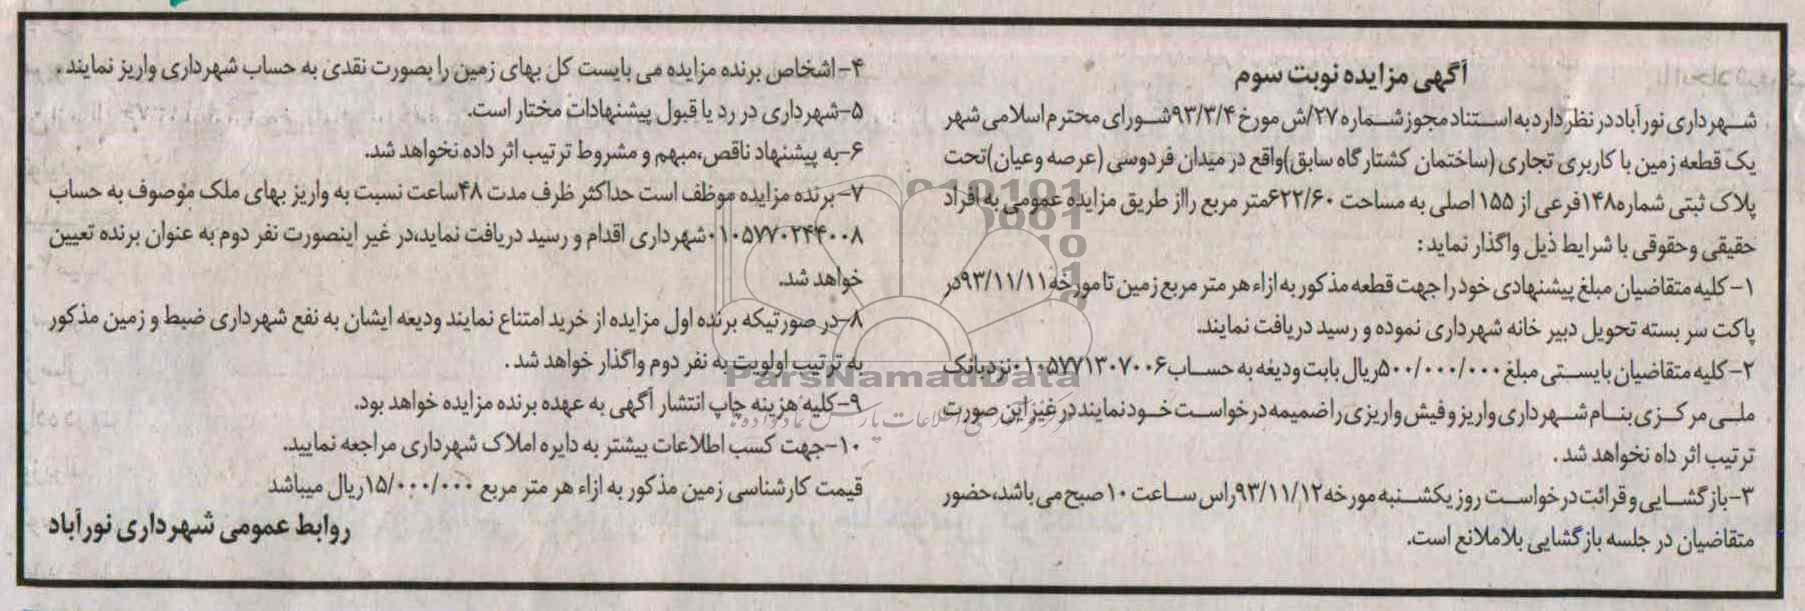 آگهی مزایده نوبت سوم
شهرداری نورآباد در نظر دارد به استناد مجوز شماره ۲۷/ش مورخ ۹۳/۳/۴ شورای محترم اسلامی شهر
یک قطعه زمین با کاربری تجاری (ساختمان کشتارگاه سابق) واقع در میدان فردوسی (عرصه وعیان) تحت
پلاک ثبتی شماره ۱۴۸ فرعی از ۱۵۵ اصلی به مساحت ۶۲۲/۶۰ متر مربع رااز طریق مزایده عمومی به افراد
حقیقی وحقوقی با شرایط ذیل واگذار نماید:
۱- کلیه متقاضیان مبلغ پیشنهادی خود را جهت قطعه مذکور به ازاء هر متر مربع زمین تا مورخه ۹۳/۱۱/۱۱ در
پاکت سر بسته تحویل دبیر خانه شهرداری نموده و رسید دریافت نمایند.
۲- کلیه متقاضیان بایستی مبلغ ۵۰۰/۰۰۰/۰۰۰ ریال بابت ودیغه به حساب ۰۱۰۵۷۷۱۳۰۷۰۰۶ نزد بانک
ملی مرکزی بنام شهرداری واریز و فیش واریزی را ضمیمه درخواست خود نمایند در غیر این صورت
ترتیب اثر داه نخواهد شد.
۳- بازگشایی و قرائت درخواست روز یکشنبه مورخه ۹۳/۱۱/۱۲ راس ساعت ۱۰ صبح می باشد،حضور
متقاضیان در جلسه بازگشایی بلاملانع است.
۴- اشخاص برنده مزایده می بایست کل بهای زمین را بصورت نقدی به حساب شهرداری واریز نمایند.
۵-شهرداری در رد یا قبول پیشنهادات مختار است.
۶-به پیشنهاد ناقص،مبهم و مشروط ترتیب اثر داده نخواهد شد.
۷- برنده مزایده موظف است حداکثر ظرف مدت ۴۸ساعت نسبت به واریز بهای ملک موصوف به حساب
۰۱۰۵۷۷۰۲۴۴۰۰۸ شهرداری اقدام و رسید دریافت نماید،در غیر اینصورت نفر دوم به عنوان برنده تعیین
خواهد شد.
۸-در صورتیکه برنده اول مزایده از خرید امتناع نمایند ودیعه ایشان به نفع شهرداری ضبط و زمین مذکور
به ترتیب اولویت به نفر دوم واگذار خواهد شد.
۹-کلیه هزینه چاپ انتشار آگهی به عهده برنده مزایده خواهد بود.
۱۰-جهت کسب اطلاعات بیشتر به دایره املاک شهرداری مراجعه نمایید.
قیمت کارشناسی زمین مذکور به ازاء هر متر مربع ۱۵/۰۰۰/۰۰۰ ریال میباشد
روابط عمومی شهرداری نورآباد
ParsNamadData